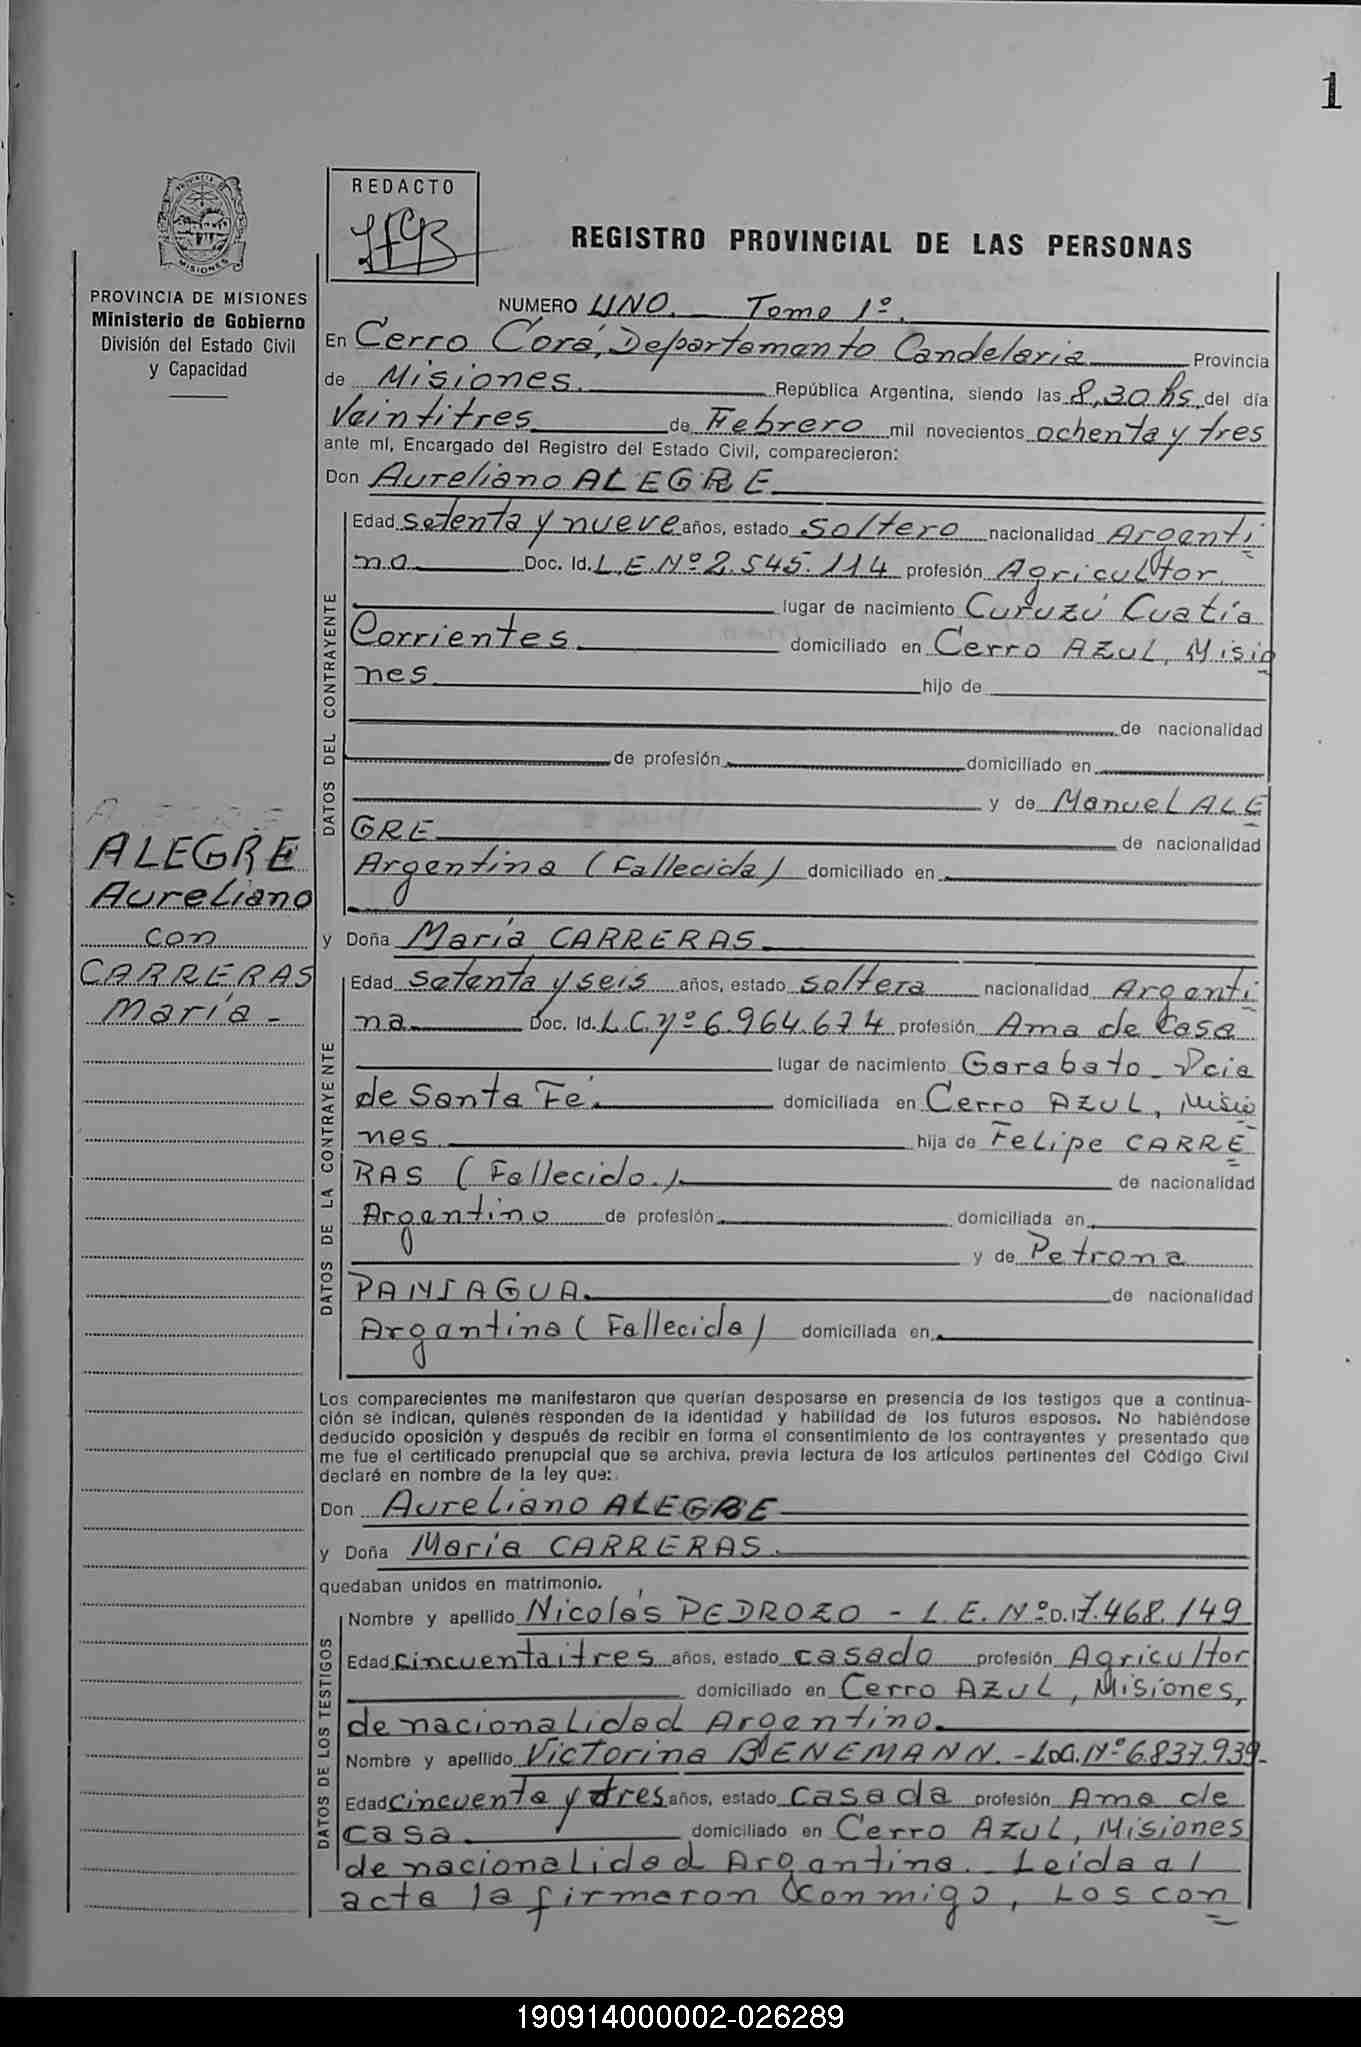 1
PROVINCIA DE MISIONES
PROVINCIA DE MISIONES
Ministerio de Gobierno
División del Estado Civil
y Capacidad
ALEGRE
Aureliano
con
CARRERAS
María -
REDACTO
REGISTRO PROVINCIAL DE LAS PERSONAS
NUMERO UNO. Tomo 1º.
En Cerro Corá, Departamento Candelaria Provincia
de Misiones. República Argentina, siendo las 8,30 hs. del día
Veintitres de Febrero mil novecientos ochenta y tres
ante mí, Encargado del Registro del Estado Civil, comparecieron:
Don Aureliano ALEGRE
DATOS DEL CONTRAYENTE
Edad setenta y nueve años, estado soltero nacionalidad Argenti
no Doc. Id. L.E.Nº 2.545.114 profesión Agricultor
lugar de nacimiento Curuzú Cuatía
Corrientes domiciliado en Cerro AZUL, Misio
nes hijo de
de nacionalidad
de profesión domiciliado en
y de Manuel ALE
GRE de nacionalidad
Argentina (Fallecida) domiciliado en
y Doña María CARRERAS
DATOS DE LA CONTRAYENTE
Edad setenta y seis años, estado soltera nacionalidad Argenti
na Doc. Id. L.C.Nº 6.964.674 profesión Ama de Casa
lugar de nacimiento Garabato - Pcia
de Santa Fé. domiciliada en Cerro AZUL, Misio
nes hija de Felipe CARRE
RAS (Fallecido.) de nacionalidad
Argentino de profesión domiciliada en
y de Petrona
PANIAGUA de nacionalidad
Argentina (Fallecida) domiciliada en
Los comparecientes me manifestaron que querían desposarse en presencia de los testigos que a continua-
ción se indican, quienes responden de la identidad y habilidad de los futuros esposos. No habiéndose
deducido oposición y después de recibir en forma el consentimiento de los contrayentes y presentado que
me fue el certificado prenupcial que se archiva, previa lectura de los artículos pertinentes del Código Civil
declaré en nombre de la ley que:
Don Aureliano ALEGRE
y Doña María CARRERAS.
quedaban unidos en matrimonio.
DATOS DE LOS TESTIGOS
Nombre y apellido Nicolás PEDROZO - L.E.Nº D.I 7.468.149
Edad cincuentaitres años, estado casado profesión Agricultor
domiciliado en Cerro AZUL, Misiones,
de nacionalidad Argentino.
Nombre y apellido Victorina BENEMANN. - Nº 6.837.939-
Edad cincuenta y tres años, estado casada profesión Ama de
casa domiciliado en Cerro AZUL, Misiones
de nacionalidad Argentina. Leida al
acta la firmaron conmigo, Los con
190914000002-026289